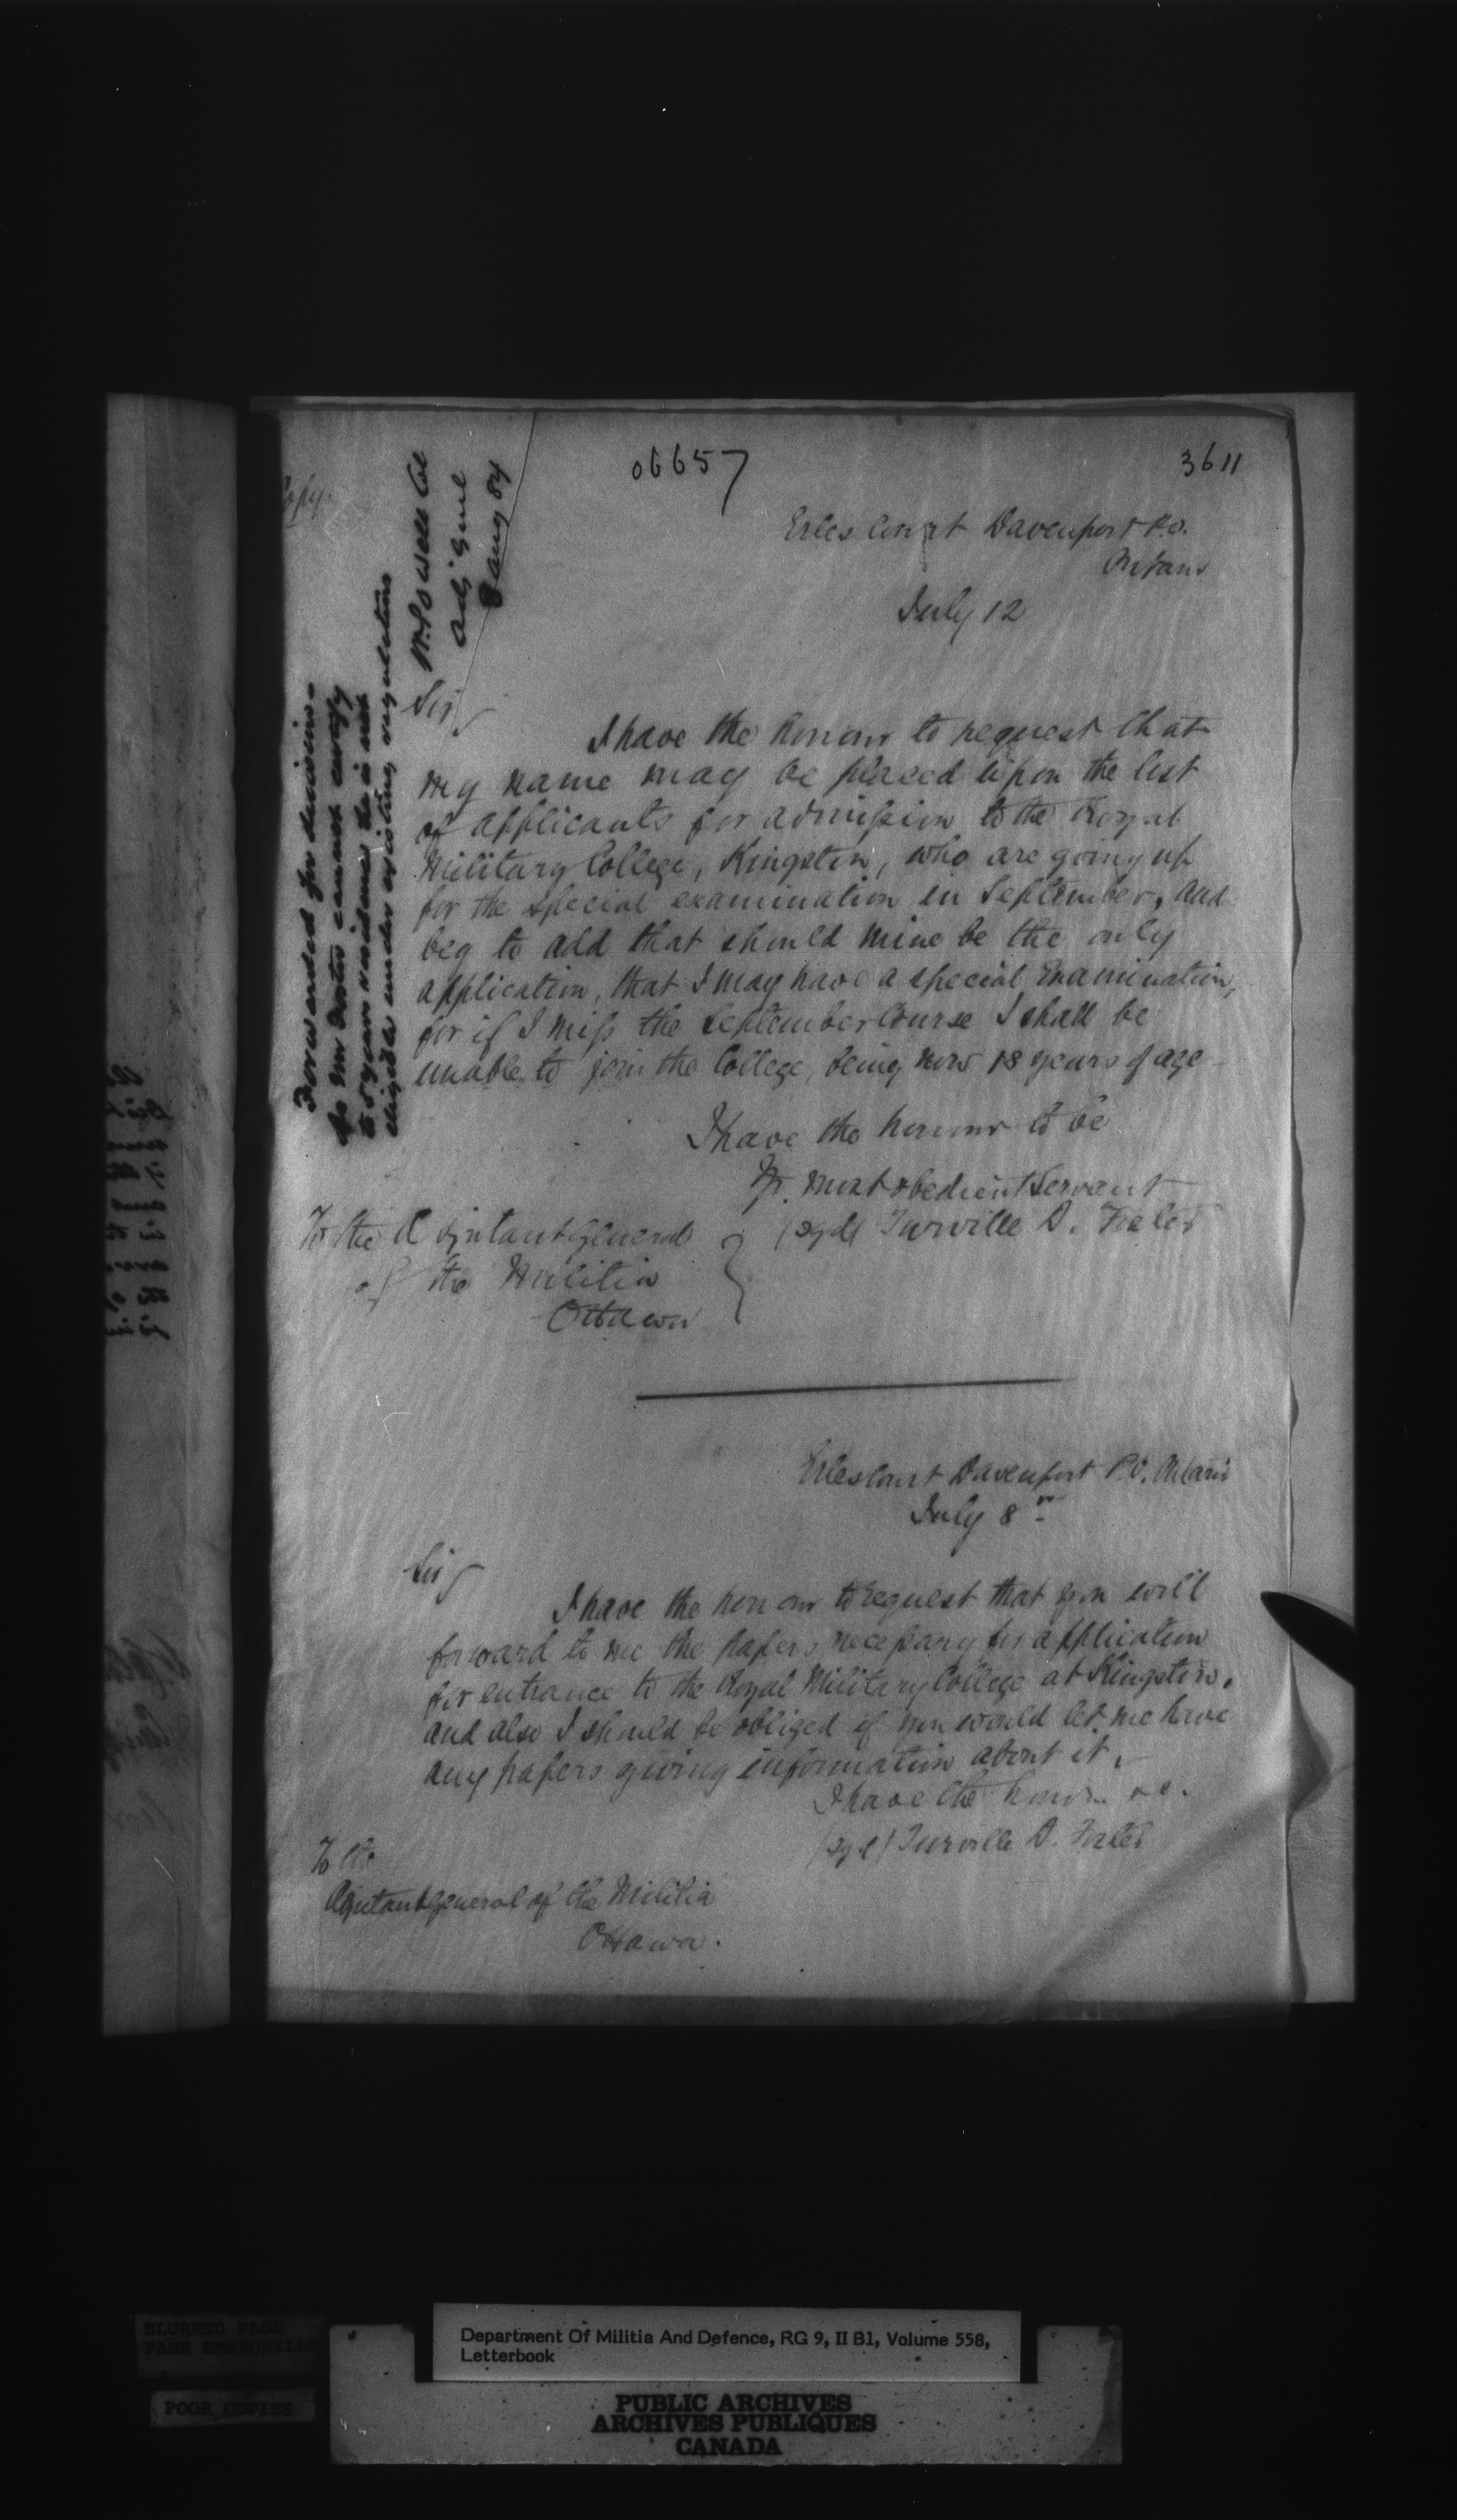 Copy.
06657
3611
Forwarded for decision -
As Mr Foster cannot certify
to 5 years residence he is not
eligible under existing regulations
W. Powell Col
Adj Genl
8 Aug 84
Erlescourt Davenport P.O.
Ontario
July 12
Sir
I have the honour to request that
my name may be placed upon the list
of applicants for admission to the Royal
Military College, Kingston, who are going up
for the special examination in September, and
beg to add that should mine be the only
application, that I may have a special Examination,
for if I miss the September Course I shall be
unable to join the College, being now 18 years of age
I have the honour to be
Yr. most obedient Servant
(sgd) Turville D.
To the Adjutant General
of the Militia
Ottawa
Erlescourt Davenport P.O. Ontario
July 8
Sir
I have the honour to request that you will
forward to me the papers necessary for application
for entrance to the Royal Military College at Kingston,
and also I should be obliged if you would let me have
any papers giving information about it.
I have the honour &c.
(sgd) Turville D.
To the
Adjutant General of the Militia
Ottawa.
BLURRED PAGE
PAGE EMBROUILL
POOR COPIES
Department Of Militia And Defence, RG 9, II B1, Volume 558,
Letterbook
PUBLIC ARCHIVES
ARCHIVES PUBLIQUES
CANADA